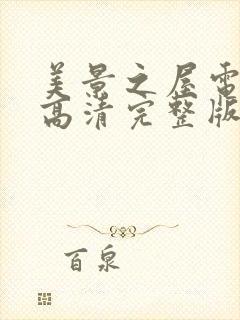 美景之屋電
高清完整版
百泉